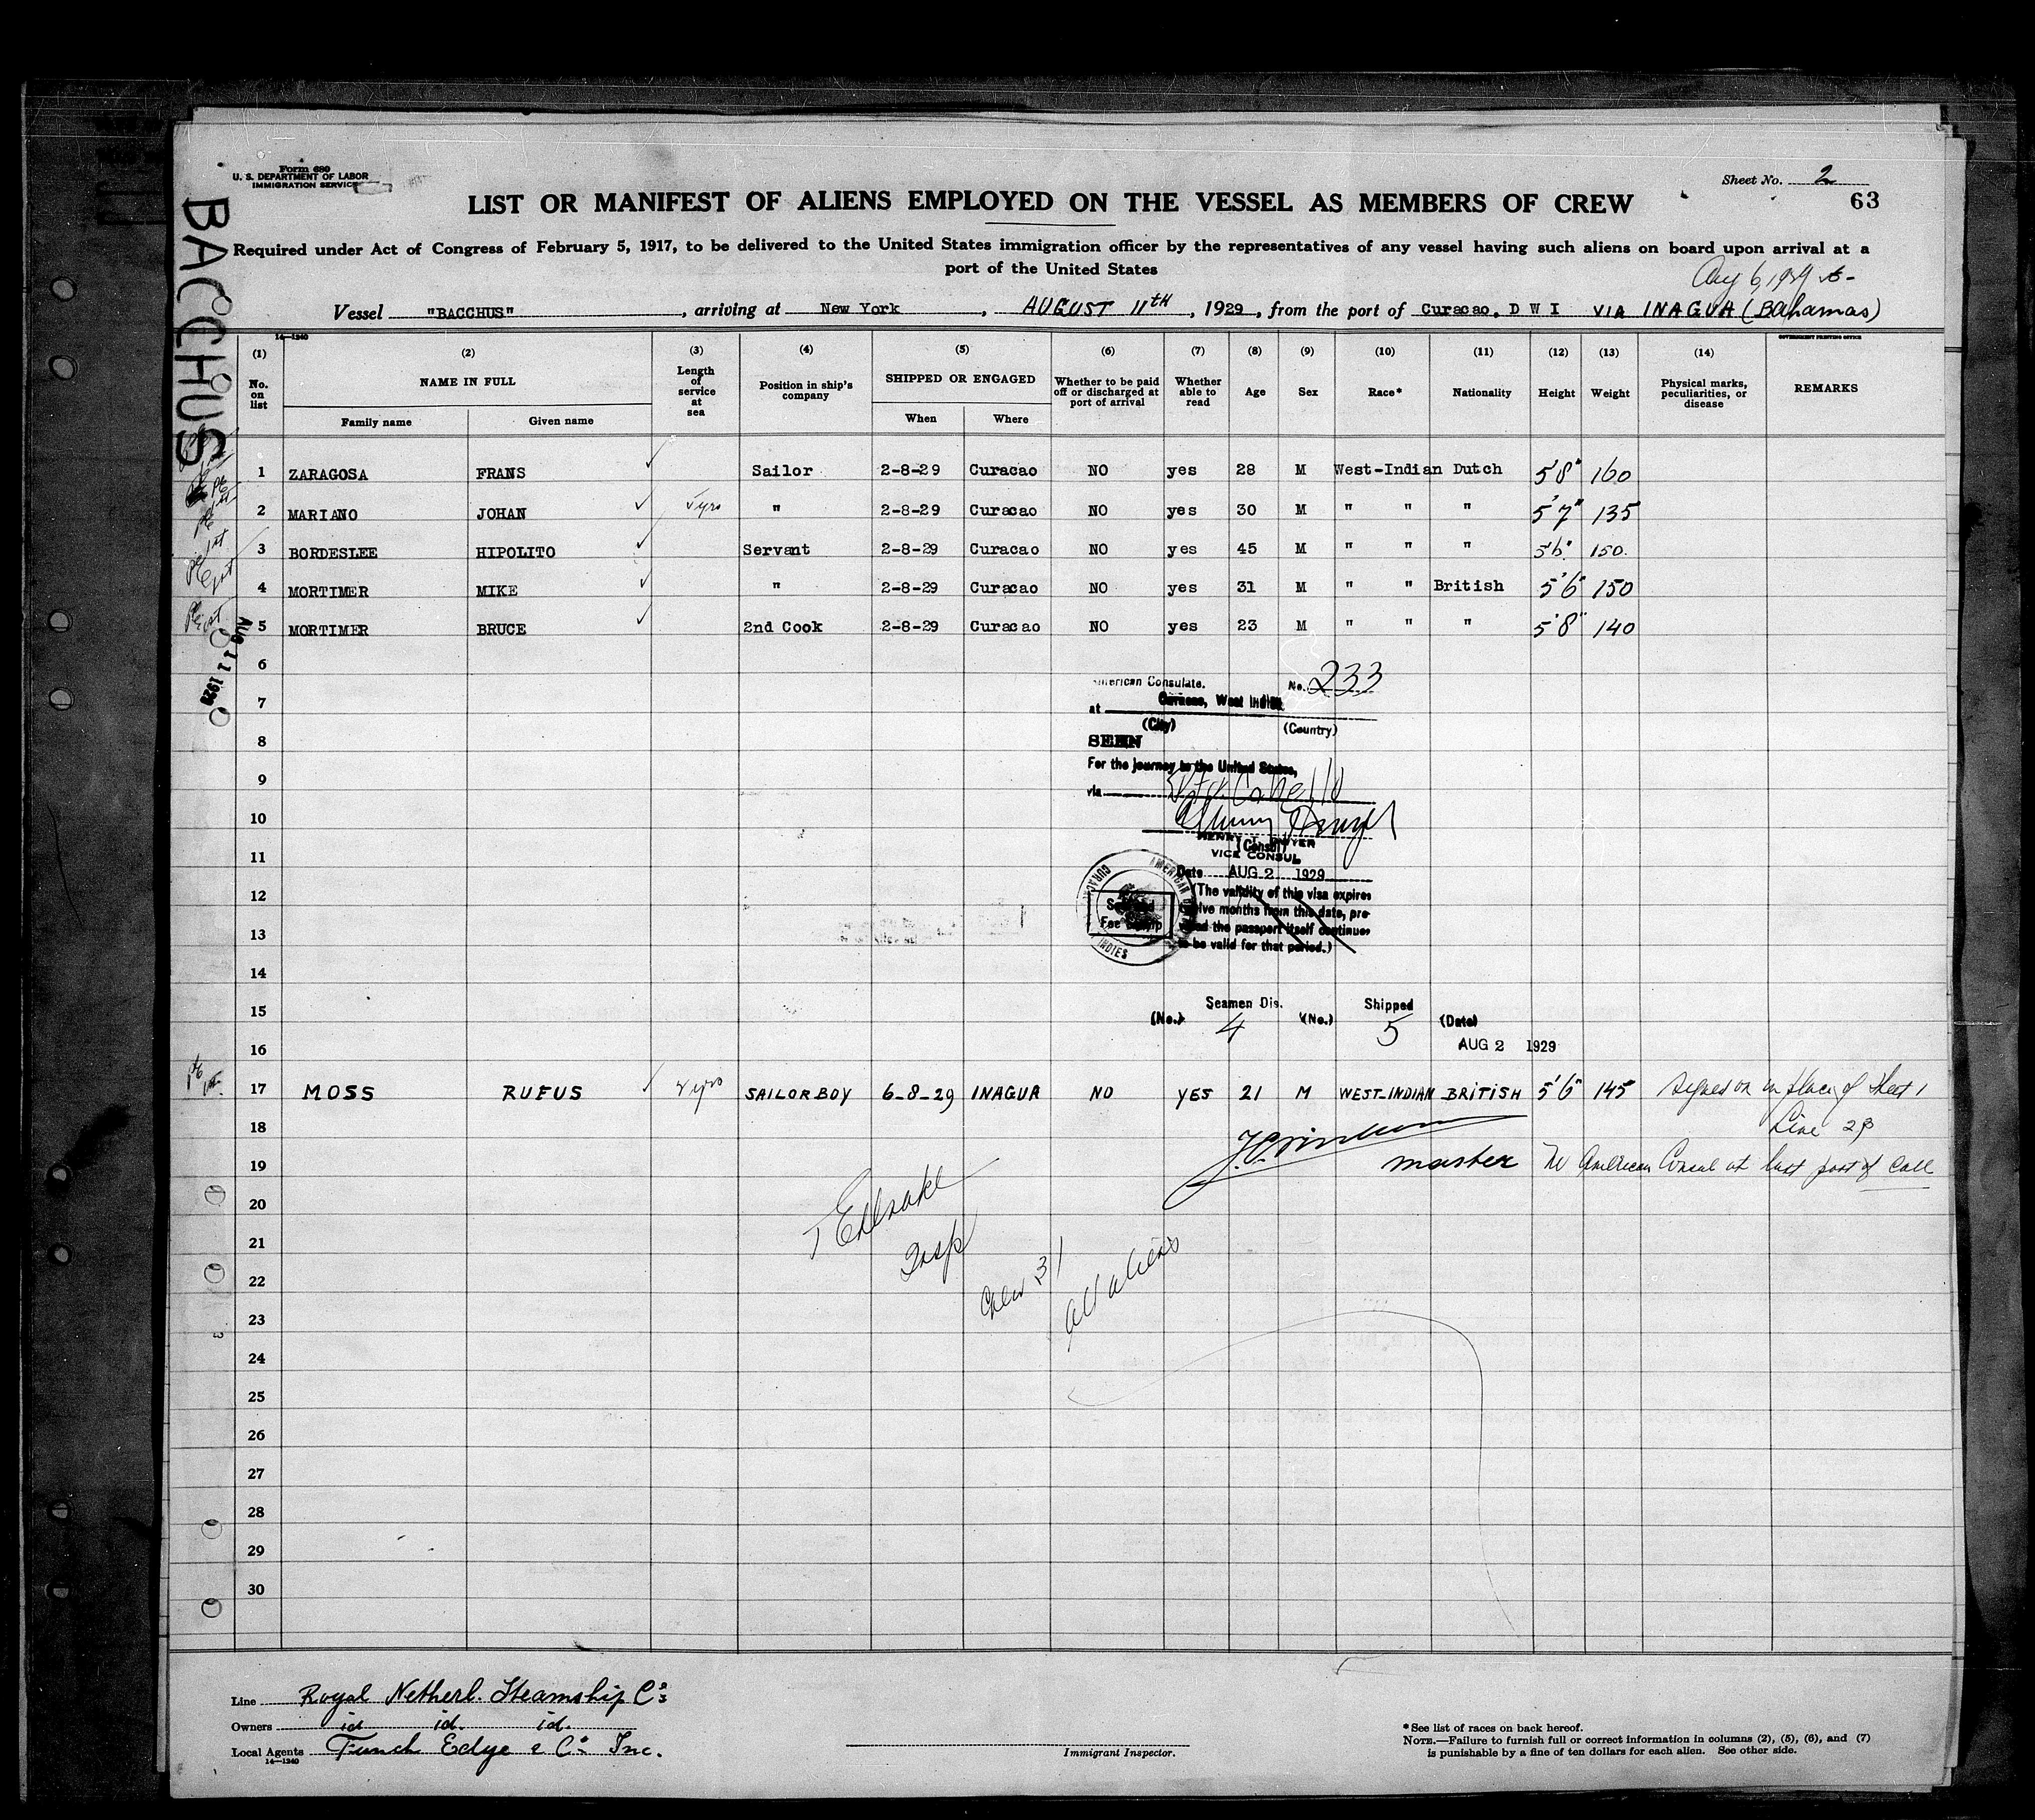 Form 680
U. S. DEPARTMENT OF LABOR
IMMIGRATION SERVICE
Sheet No. 2
LIST OR MANIFEST OF ALIENS EMPLOYED ON THE VESSEL AS MEMBERS OF CREW
63
Required under Act of Congress of February 5, 1917, to be delivered to the United States immigration officer by the representatives of any vessel having such aliens on board upon arrival at a
port of the United States
Aug 6, 1929
Vessel "BACCHUS", arriving at New York, AUGUST 11TH, 1929, from the port of Curacao, D W I VIA INAGUA (Bahamas)
BACCHUS
14—1240
GOVERNMENT PRINTING OFFICE
(1) No. on list (2) NAME IN FULL Family name Given name (3) Length of service at sea (4) Position in ship's company (5) SHIPPED OR ENGAGED When Where (6) Whether to be paid off or discharged at port of arrival (7) Whether able to read (8) Age (9) Sex (10) Race* (11) Nationality (12) Height (13) Weight (14) Physical marks, peculiarities, or disease REMARKS
1 ZARAGOSA FRANS Sailor 2-8-29 Curacao NO yes 28 M West-Indian Dutch 5'8" 160
2 MARIANO JOHAN 5 yrs " 2-8-29 Curacao NO yes 30 M " " " 5'7" 135
3 BORDESLEE HIPOLITO Servant 2-8-29 Curacao NO yes 45 M " " " 5'6" 150
4 MORTIMER MIKE " 2-8-29 Curacao NO yes 31 M " " British 5'6" 150
5 MORTIMER BRUCE 2nd Cook 2-8-29 Curacao NO yes 23 M " " " 5'8" 140
Aug 11 1929
6
American Consulate. No. 233
7
at Curacao, West Indies
(City) (Country)
8
SEEN
For the journey to the United States,
9
via Pto. Cabello
10
HENRY T. DWYER
(Consul)
VICE CONSUL
11
Date AUG 2 1929
(The validity of this visa expires
12
twelve months from this date, pro-
vided the passport itself continues
13
to be valid for that period.)
AMERICAN CURACAO INDIES
Fee Stamp
14
15
Seamen Dis. Shipped
(No.) 4 (No.) 5 (Date)
16
AUG 2 1929
17 MOSS RUFUS yrs SAILORBOY 6-8-29 INAGUA NO YES 21 M WEST-INDIAN BRITISH 5'6" 145 Signed on in place of Sheet 1
18
Line 28
19
master No American Consul at last port of call
20
21
Insp
22
Crew 31
All aliens
23
24
25
26
27
28
29
30
Line Royal Netherl. Steamship Co
Owners id id. id.
Local Agents Funch Edye & Co Inc.
14—1240
Immigrant Inspector.
*See list of races on back hereof.
NOTE.—Failure to furnish full or correct information in columns (2), (5), (6), and (7)
is punishable by a fine of ten dollars for each alien. See other side.